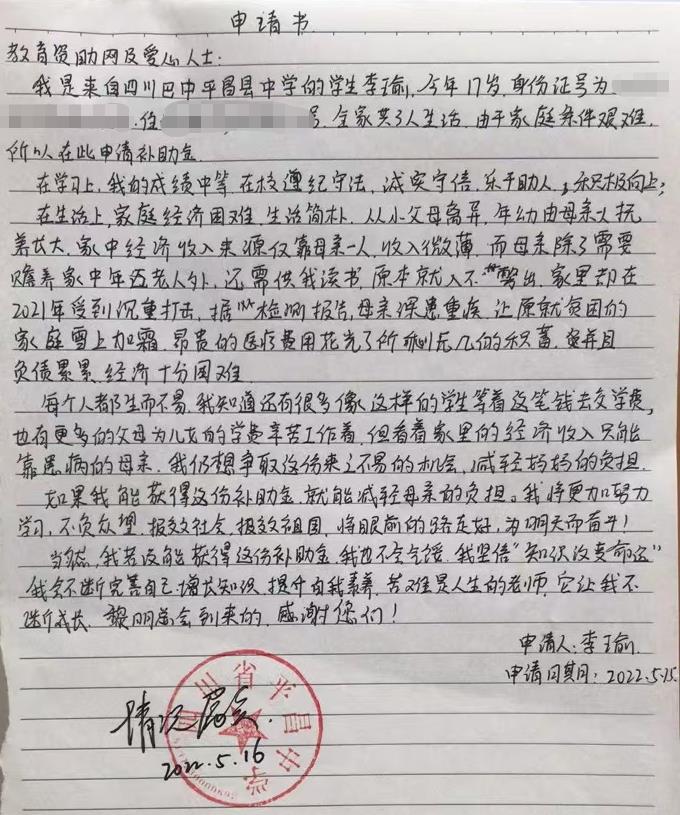 申请书
教育资助网及爱心人士:
我是来自四川巴中平昌县中学的学生李瑜,今年17岁,身份证号为
,住 号,全家共3人生活,由于家庭条件艰难,
所以在此申请补助金.
在学习上,我的成绩中等,在校遵纪守法,诚实守信,乐于助人,积极向上;
在生活上,家庭经济困难,生活简朴.从小父母离异,年幼由母亲一人抚
养长大.家中经济收入来源仅靠母亲一人,收入微薄,而母亲除了需要
赡养家中年迈老人外,还需供我读书,原本就入不敷出,家里却在
2021年受到沉重打击,据 检测报告,母亲深患重疾,让原就贫困的
家庭雪上加霜.昂贵的医疗费用花光了所剩无几的积蓄,并且
负债累累,经济十分困难.
每个人都生而不易,我知道还有很多像这样的学生等着这笔钱去交学费,
也有更多的父母为儿女的学费辛苦工作着,但看着家里的经济收入只能
靠患病的母亲.我仍想争取这份来之不易的机会,减轻妈妈的负担.
如果我能获得这份补助金,就能减轻母亲的负担。我将更加努力
学习,不负众望,报效社会,报效祖国,将眼前的路走好,为明天而奋斗!
当然,我若没能获得这份补助金,我也不会气馁,我坚信“知识改变命运”
我会不断完善自己,增长知识,提升自我素养,苦难是人生的老师,它让我不
断成长.黎明总会到来的,感谢您们!
申请人:李瑜
申请日期:2022.5.15.
四川省平昌中学
情况属实.
2022.5.16